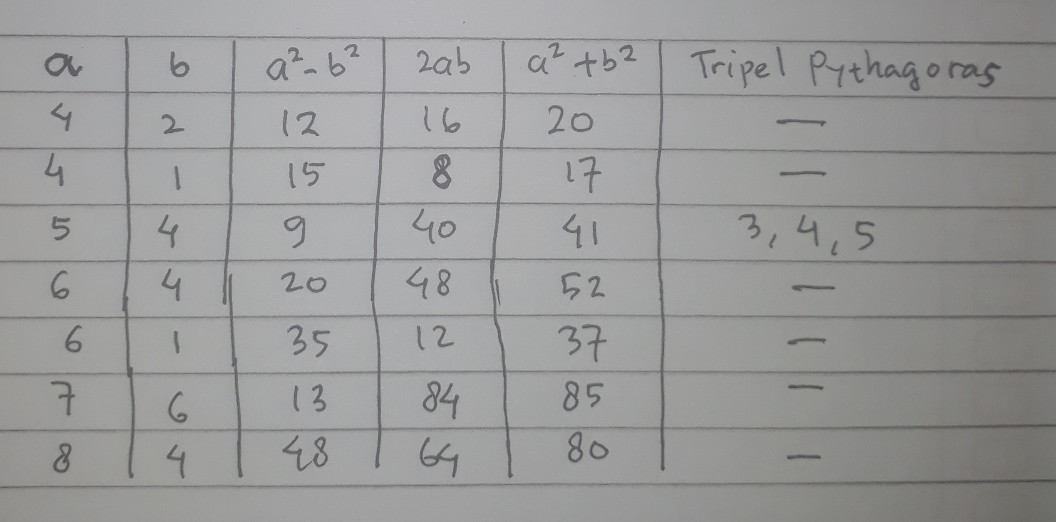 a b a² - b² 2ab a² + b² Tripel Pythagoras
4 2 12 16 20 —
4 1 15 8 17 —
5 4 9 40 41 3, 4, 5
6 4 20 48 52 —
6 1 35 12 37 —
7 6 13 84 85 —
8 4 48 64 80 —